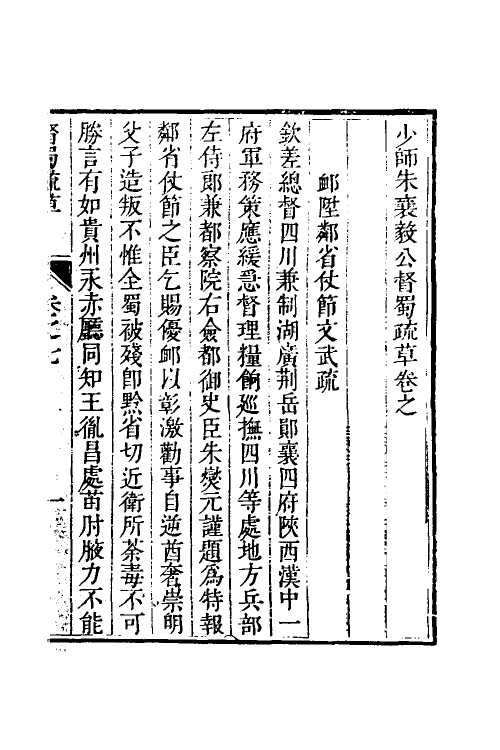 少師朱襄毅公督蜀疏草卷之
卹陞鄰省仗節文武疏
欽差總督四川兼制湖廣荊岳鄖襄四府陜西漢中一
府軍務策應緩急督理糧餉巡撫四川等處地方兵部
左侍郎兼都察院右僉都御史臣朱燮元謹題爲特報
鄰省仗節之臣乞賜優卹以彰激勸事自逆酋奢崇明
父子造叛不惟全蜀被殘卽黔省切近衛所荼毒不可
勝言有如貴州永赤廳同知王胤昌處苗肘腋力不能
督蜀疏草 卷之七 一